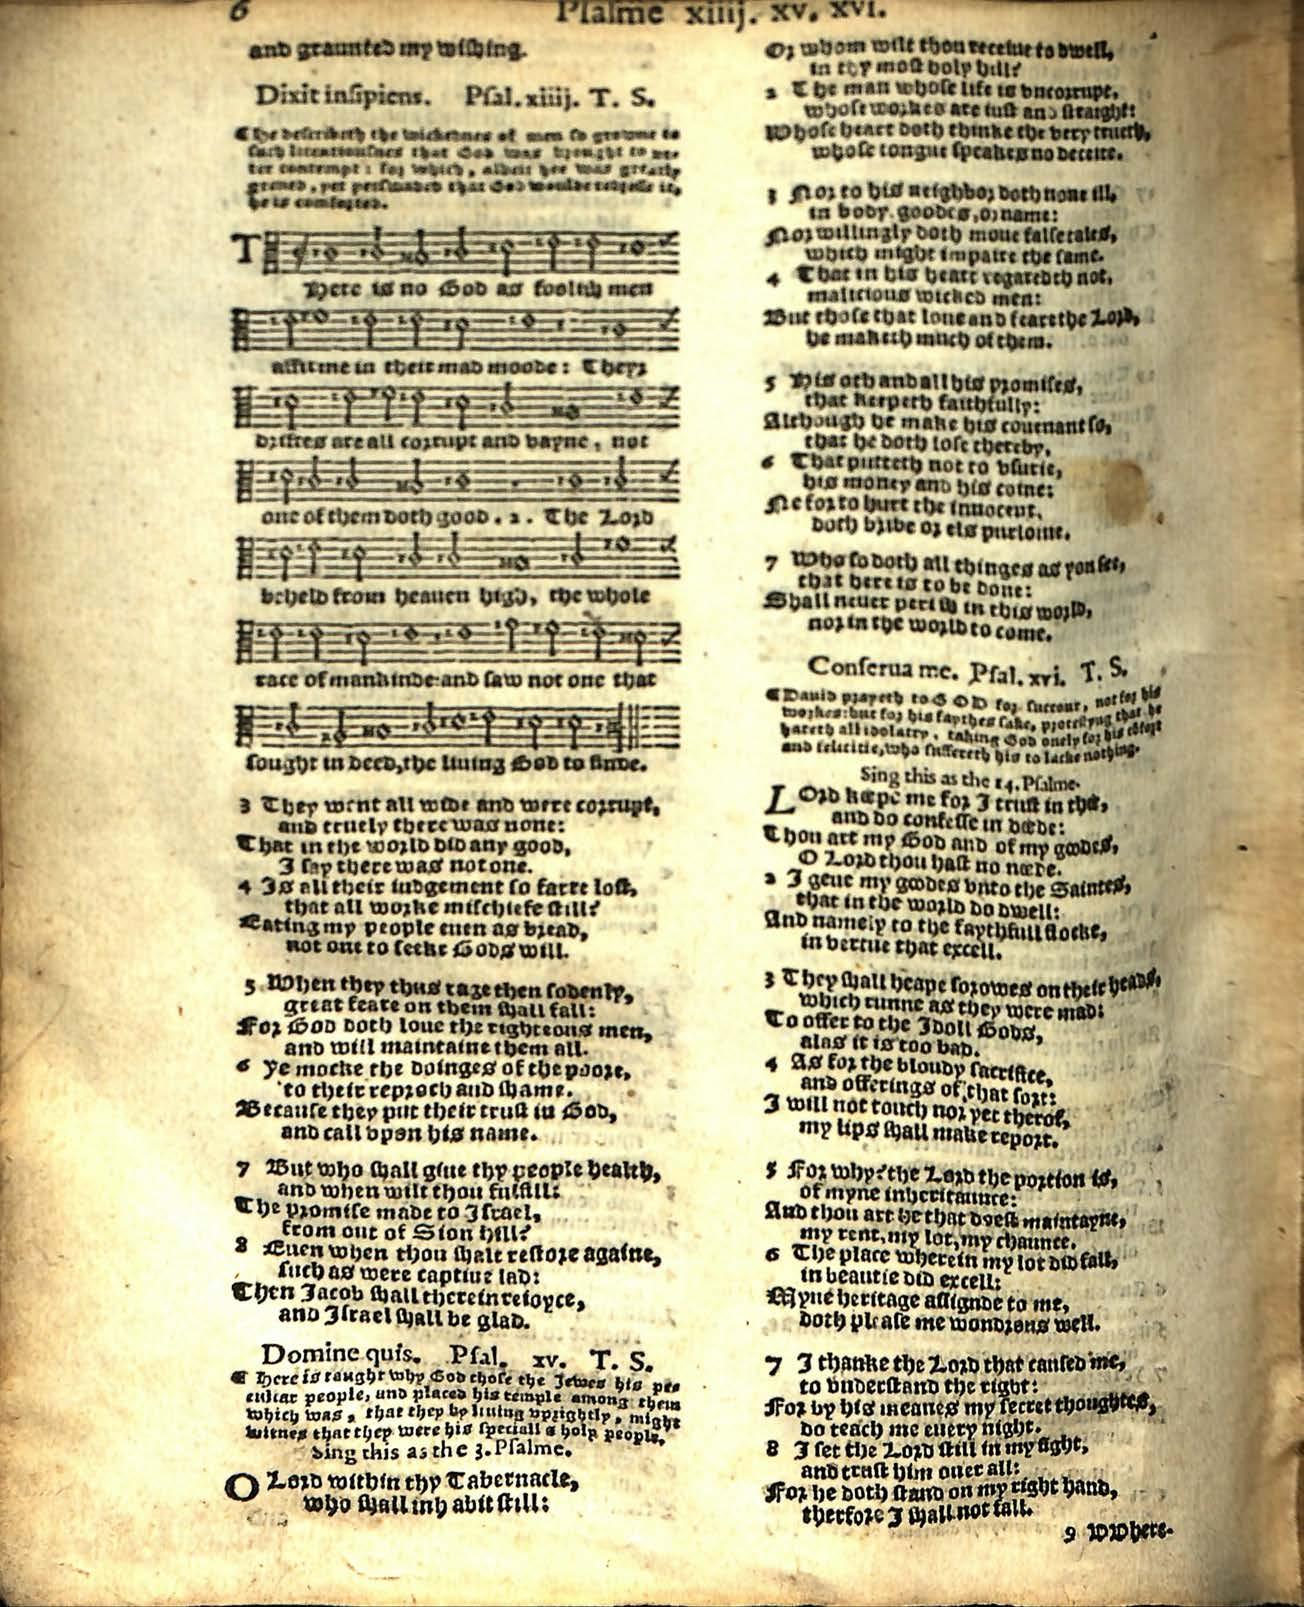 6
Psalme xiiij. xv. xvi.
and graunted my wishing.
Dixit insipiens. Psal. xiiij. T. S.
¶ He describeth the wickednes of men so growne to
such licentiousnes that God was brought to vt-
ter contempt: for which, albeit hee was greatly
greued, yet perswaded that God woulde redresse it,
he is comforted.
THere is no God as foolish men
affirme in their mad moode: Theyr
driftes are all corrupt and vayne, not
one of them doth good. 2. The Lord
beheld from heauen high, the whole
race of mankinde: and saw not one that
sought in deed, the liuing God to finde.
3 They went all wide and were corrupt,
and truely there was none:
That in the world did any good,
I say there was not one.
4 Is all their iudgement so farre lost,
that all worke mischiefe still?
Eating my people euen as bread,
not one to seeke Gods will.
5 When they thus rage then sodenly,
great feare on them shall fall:
For God doth loue the righteous men,
and will maintaine them all.
6 Ye mocke the doinges of the poore,
to their reproch and shame.
Because they put their trust in God,
and call vpon his name.
7 But who shall giue thy people health,
and when wilt thou fulfill:
The promise made to Israel,
from out of Sion hill?
8 Euen when thou shalt restore againe,
such as were captiue lad:
Then Jacob shall therein reioyce,
and Israel shall be glad.
Domine quis. Psal. xv. T. S.
¶ Here is taught why God chose the Jewes his pe-
culiar people, and placed his temple among them
which was, that they by liuing vprightly, might
witnes that they were his speciall & holy people.
Sing this as the 3. Psalme.
O Lord within thy Tabernacle,
who shall inhabit still:
Or whom wilt thou receiue to dwell,
in thy most holy hill?
2 The man whose life is vncorrupt,
whose workes are iust and straight:
Whose heart doth thinke the very trueth,
whose tongue speakes no deceite.
3 Nor to his neighbor doth none ill,
in body, goodes, or name:
Nor willingly doth moue false tales,
which might impaire the same.
4 That in his heart regardeth not,
malicious wicked men:
But those that loue and feare the Lord,
he maketh much of them.
5 His oth and all his promises,
that keepeth faithfully:
Although he make his couenant so,
that he doth lose thereby.
6 That putteth not to vsurie,
his money and his coine:
Ne for to hurt the innocent,
doth bribe or els purloine.
7 Who so doth all thinges as you see,
that here is to be done:
Shall neuer perish in this world,
nor in the world to come.
Conserua me. Psal. xvi. T. S.
¶ Dauid prayeth to GOD for succour, not for his
workes: but for his faythes sake, protestyng that he
hateth all idolatry, taking God onely for his cõfort
and felicitie, who suffereth his to lacke nothing.
Sing this as the 14. Psalme.
LOrd keepe me for I trust in thee,
and do confesse in deede:
Thou art my God and of my goodes,
O Lord thou hast no neede.
2 I geue my goodes vnto the Saintes,
that in the world do dwell:
And namely to the faythfull flocke,
in vertue that excell.
3 They shall heape sorowes on their heads,
which runne as they were mad:
To offer to the Idoll Gods,
alas it is too bad.
4 As for the bloudy sacrifice,
and offerings of that sort:
I will not touch nor yet therof,
my lips shall make report.
5 For why? the Lord the portion is,
of myne inheritaunce:
And thou art he that doest maintayne,
my rent, my lot, my chaunce.
6 The place wherein my lot did fall,
in beautie did excell:
Myne heritage assignde to me,
doth please me wondrous well.
7 I thanke the Lord that caused me,
to vnderstand the right:
For by his meanes my secret thoughtes,
do teach me euery night.
8 I set the Lord still in my sight,
and trust him ouer all:
For he doth stand on my right hand,
therfore I shall not fall.
9 WWhere-